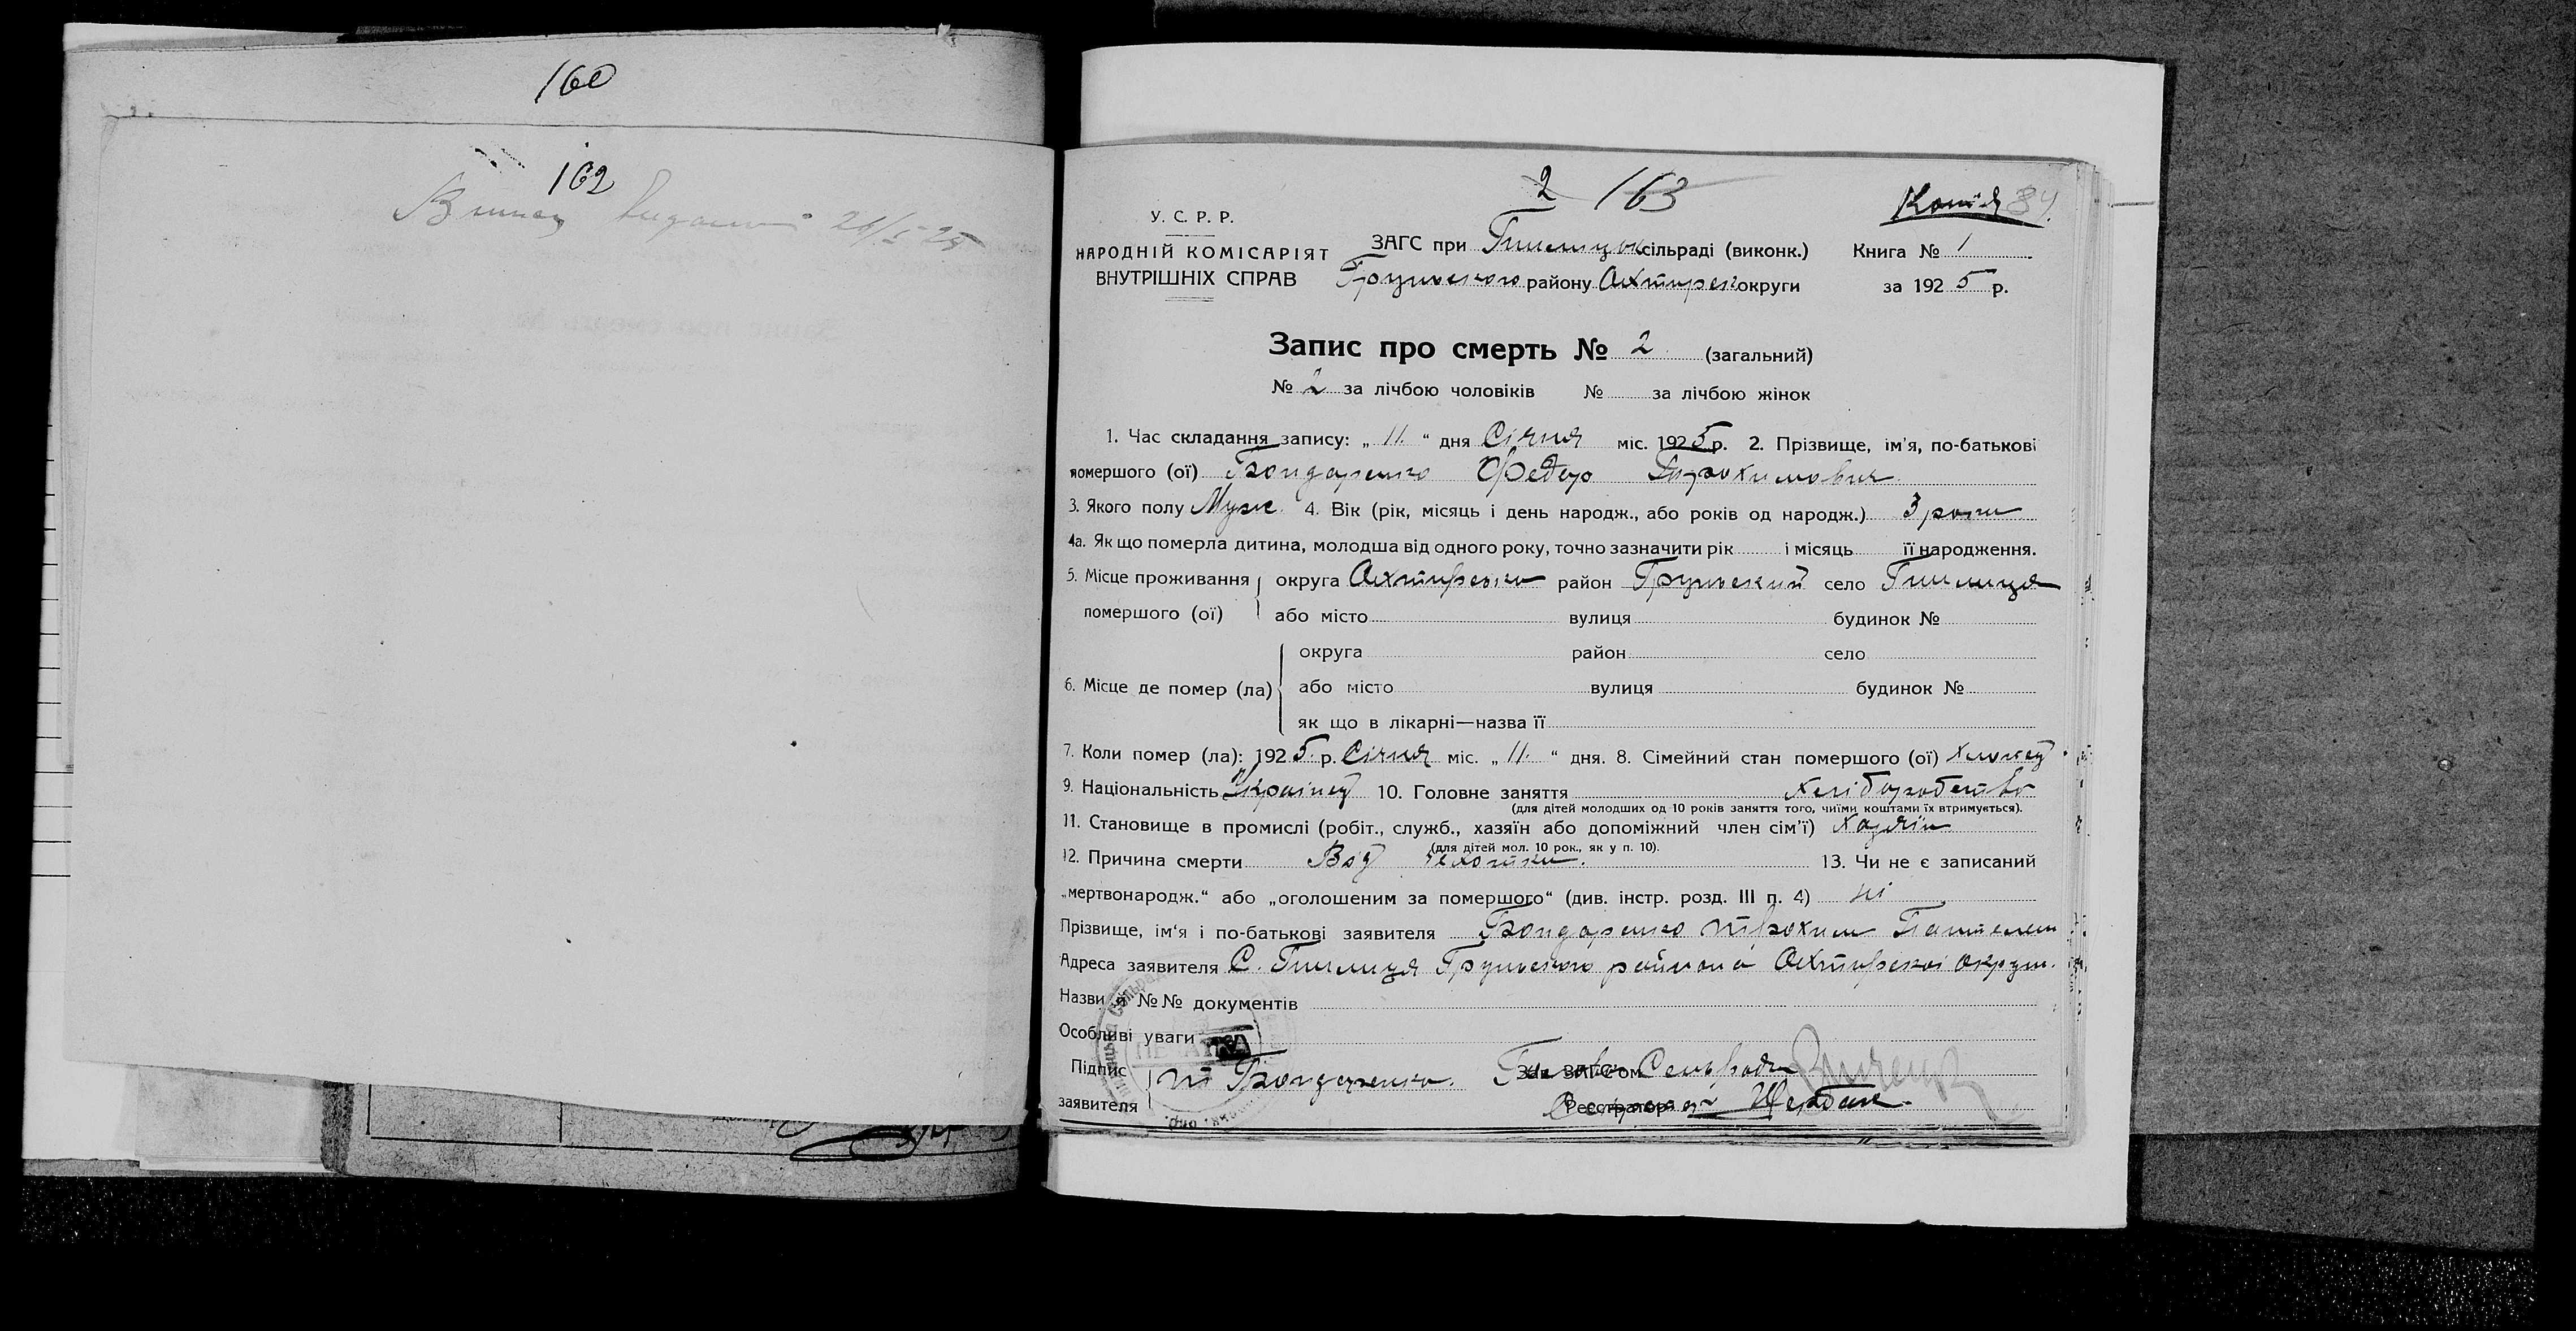 160
162
26/I 25
2 163 Копія 84.
У. С. Р. Р.
НАРОДНІЙ КОМІСАРІЯТ
ВНУТРІШНІХ СПРАВ
ЗАГС при сільраді (виконк.) Книга № 1
Грунського району Охтирськ округи за 1925 р.
Запис про смерть № 2 (загальний)
№ 2 за лічбою чоловіків № за лічбою жінок
1. Час складання запису: „ 11. “ дня Січня міс. 1925 р. 2. Прізвище, ім'я, по-батькові
помершого (ої) Бондаренко Федор Трохимович
3. Якого полу Муж. 4. Вік (рік, місяць і день народж., або років од народж.) 3 роки
4а. Як що померла дитина, молодша від одного року, точно зазначити рік і місяць її народження.
5. Місце проживання округа Охтирська район Грунський село
помершого (ої) або місто вулиця будинок №
округа район село
6. Місце де помер (ла) або місто вулиця будинок №
як що в лікарні—назва її
7. Коли помер (ла): 1925. р. Січня міс. „ 11. “ дня. 8. Сімейний стан помершого (ої) хлопец
9. Національність Украінец 10. Головне заняття Хліборобство
(для дітей молодших од 10 років заняття того, чиїми коштами їх втримується).
11. Становище в промислі (робіт., служб., хазяїн або допоміжний член сім'ї) Хазяїн
(для дітей мол. 10 рок., як у п. 10).
12. Причина смерти Від чехотки. 13. Чи не є записаний
„мертвонародж.“ або „оголошеним за помершого“ (див. інстр. розд. III п. 4) ні
Прізвище, ім'я і по-батькові заявителя Бондаренко Трохим Пантелем
Адреса заявителя С. Грунського района Охтирскоі округи.
Назви й №№ документів
Особливі уваги
Підпис Т Бондаренко. Зав. ЗАГС'ом Голова Сельради
заявителя Реєстратор Секретар Щербак.